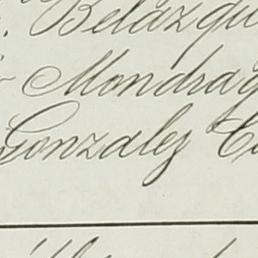 Belázqu
Mondrag
Gonzalez C